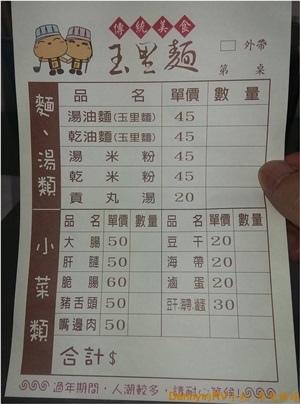 傳統美食
玉里麵
□ 外帶
第 桌
麵、湯類
品 名 單價 數量
湯油麵(玉里麵) 45
乾油麵(玉里麵) 45
湯米粉 45
乾米粉 45
貢丸湯 20
小菜類
品名 單價 數量 品名 單價 數量
大腸 50 豆干 20
肝膶 50 海帶 20
脆腸 60 滷蛋 20
豬舌頭 50 30
嘴邊肉 50
合計$
過年期間，人潮較多，請耐心等候！